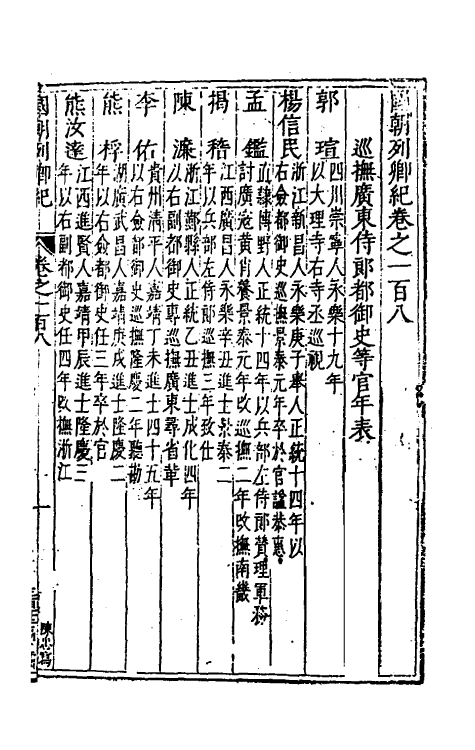 國朝列卿紀卷之一百八
巡撫廣東侍郎都御史等官年表
郭瑄
四川崇寧人永樂十九年
以大理寺右寺丞巡視
楊信民
浙江新昌人永樂庚子舉人正統十四年以
右僉都御史巡撫景泰元年卒於官諡恭惠
孟鑑
直隸博野人正統十四年以兵部左侍郎贊理軍務
討廣寇黃肖養景泰元年改巡撫二年改撫南畿
揭稽
江西廣昌人永樂辛丑進士景泰二
年以兵部左侍郎巡撫三年致仕
陳濂
浙江鄞縣人正統乙丑進士成化四年
以右副都御史專巡撫廣東尋省革
李佑
貴州清平人嘉靖丁未進士四十五年
以右僉都御史巡撫隆慶二年聽勘
熊桴
湖廣武昌人嘉靖庚戌進士隆慶二
年以右僉都御史任三年卒於官
熊汝達
江西進賢人嘉靖甲辰進士隆慶三
年以右副都御史任四年改撫浙江
國朝列卿紀
卷之一百八
一